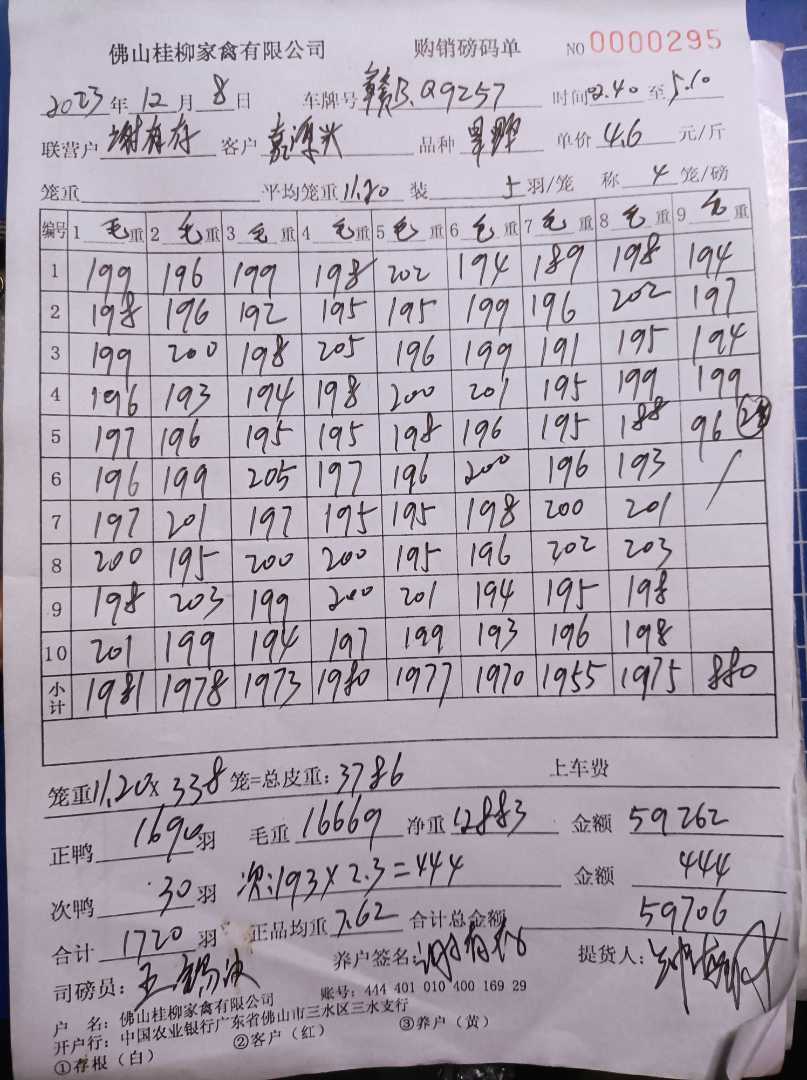 佛山桂柳家禽有限公司 购销磅码单 NO 0000295
2023年 12月 8日 车牌号 赣B.Q9257 时间 2.40 至 5.10
联营户 谢有存 客户 品种 单价 4.6 元/斤
笼重 平均笼重 11.20 装 5 羽/笼 称 4 笼/磅
编号 1 毛重 2 毛重 3 毛重 4 毛重 5 毛重 6 毛重 7 毛重 8 毛重 9 毛重
1 199 196 199 198 202 194 189 198 194
2 198 196 192 195 195 199 196 202 197
3 199 200 198 205 196 199 191 195 194
4 196 193 194 198 200 201 195 199 199
5 197 196 195 195 198 196 195 188 96
6 196 199 205 197 196 200 196 193 /
7 197 201 197 195 195 198 200 201
8 200 195 200 200 195 196 202 203
9 198 203 199 200 201 194 195 198
10 201 199 194 197 199 193 196 198
小计 1981 1978 1973 1980 1977 1970 1955 1975 880
笼重 11.20 × 338 笼=总皮重: 3786 上车费
正鸭 1690 羽 毛重 16669 净重 12883 金额 59262
次鸭 30 羽 次:193×2.3=444 金额 444
合计 1720 羽 正品均重 7.62 合计总金额 59706
司磅员: 养户签名: 提货人:
户 名: 佛山桂柳家禽有限公司 账号: 444 401 010 400 169 29
开户行: 中国农业银行广东省佛山市三水区三水支行
①存根（白） ②客户（红） ③养户（黄）